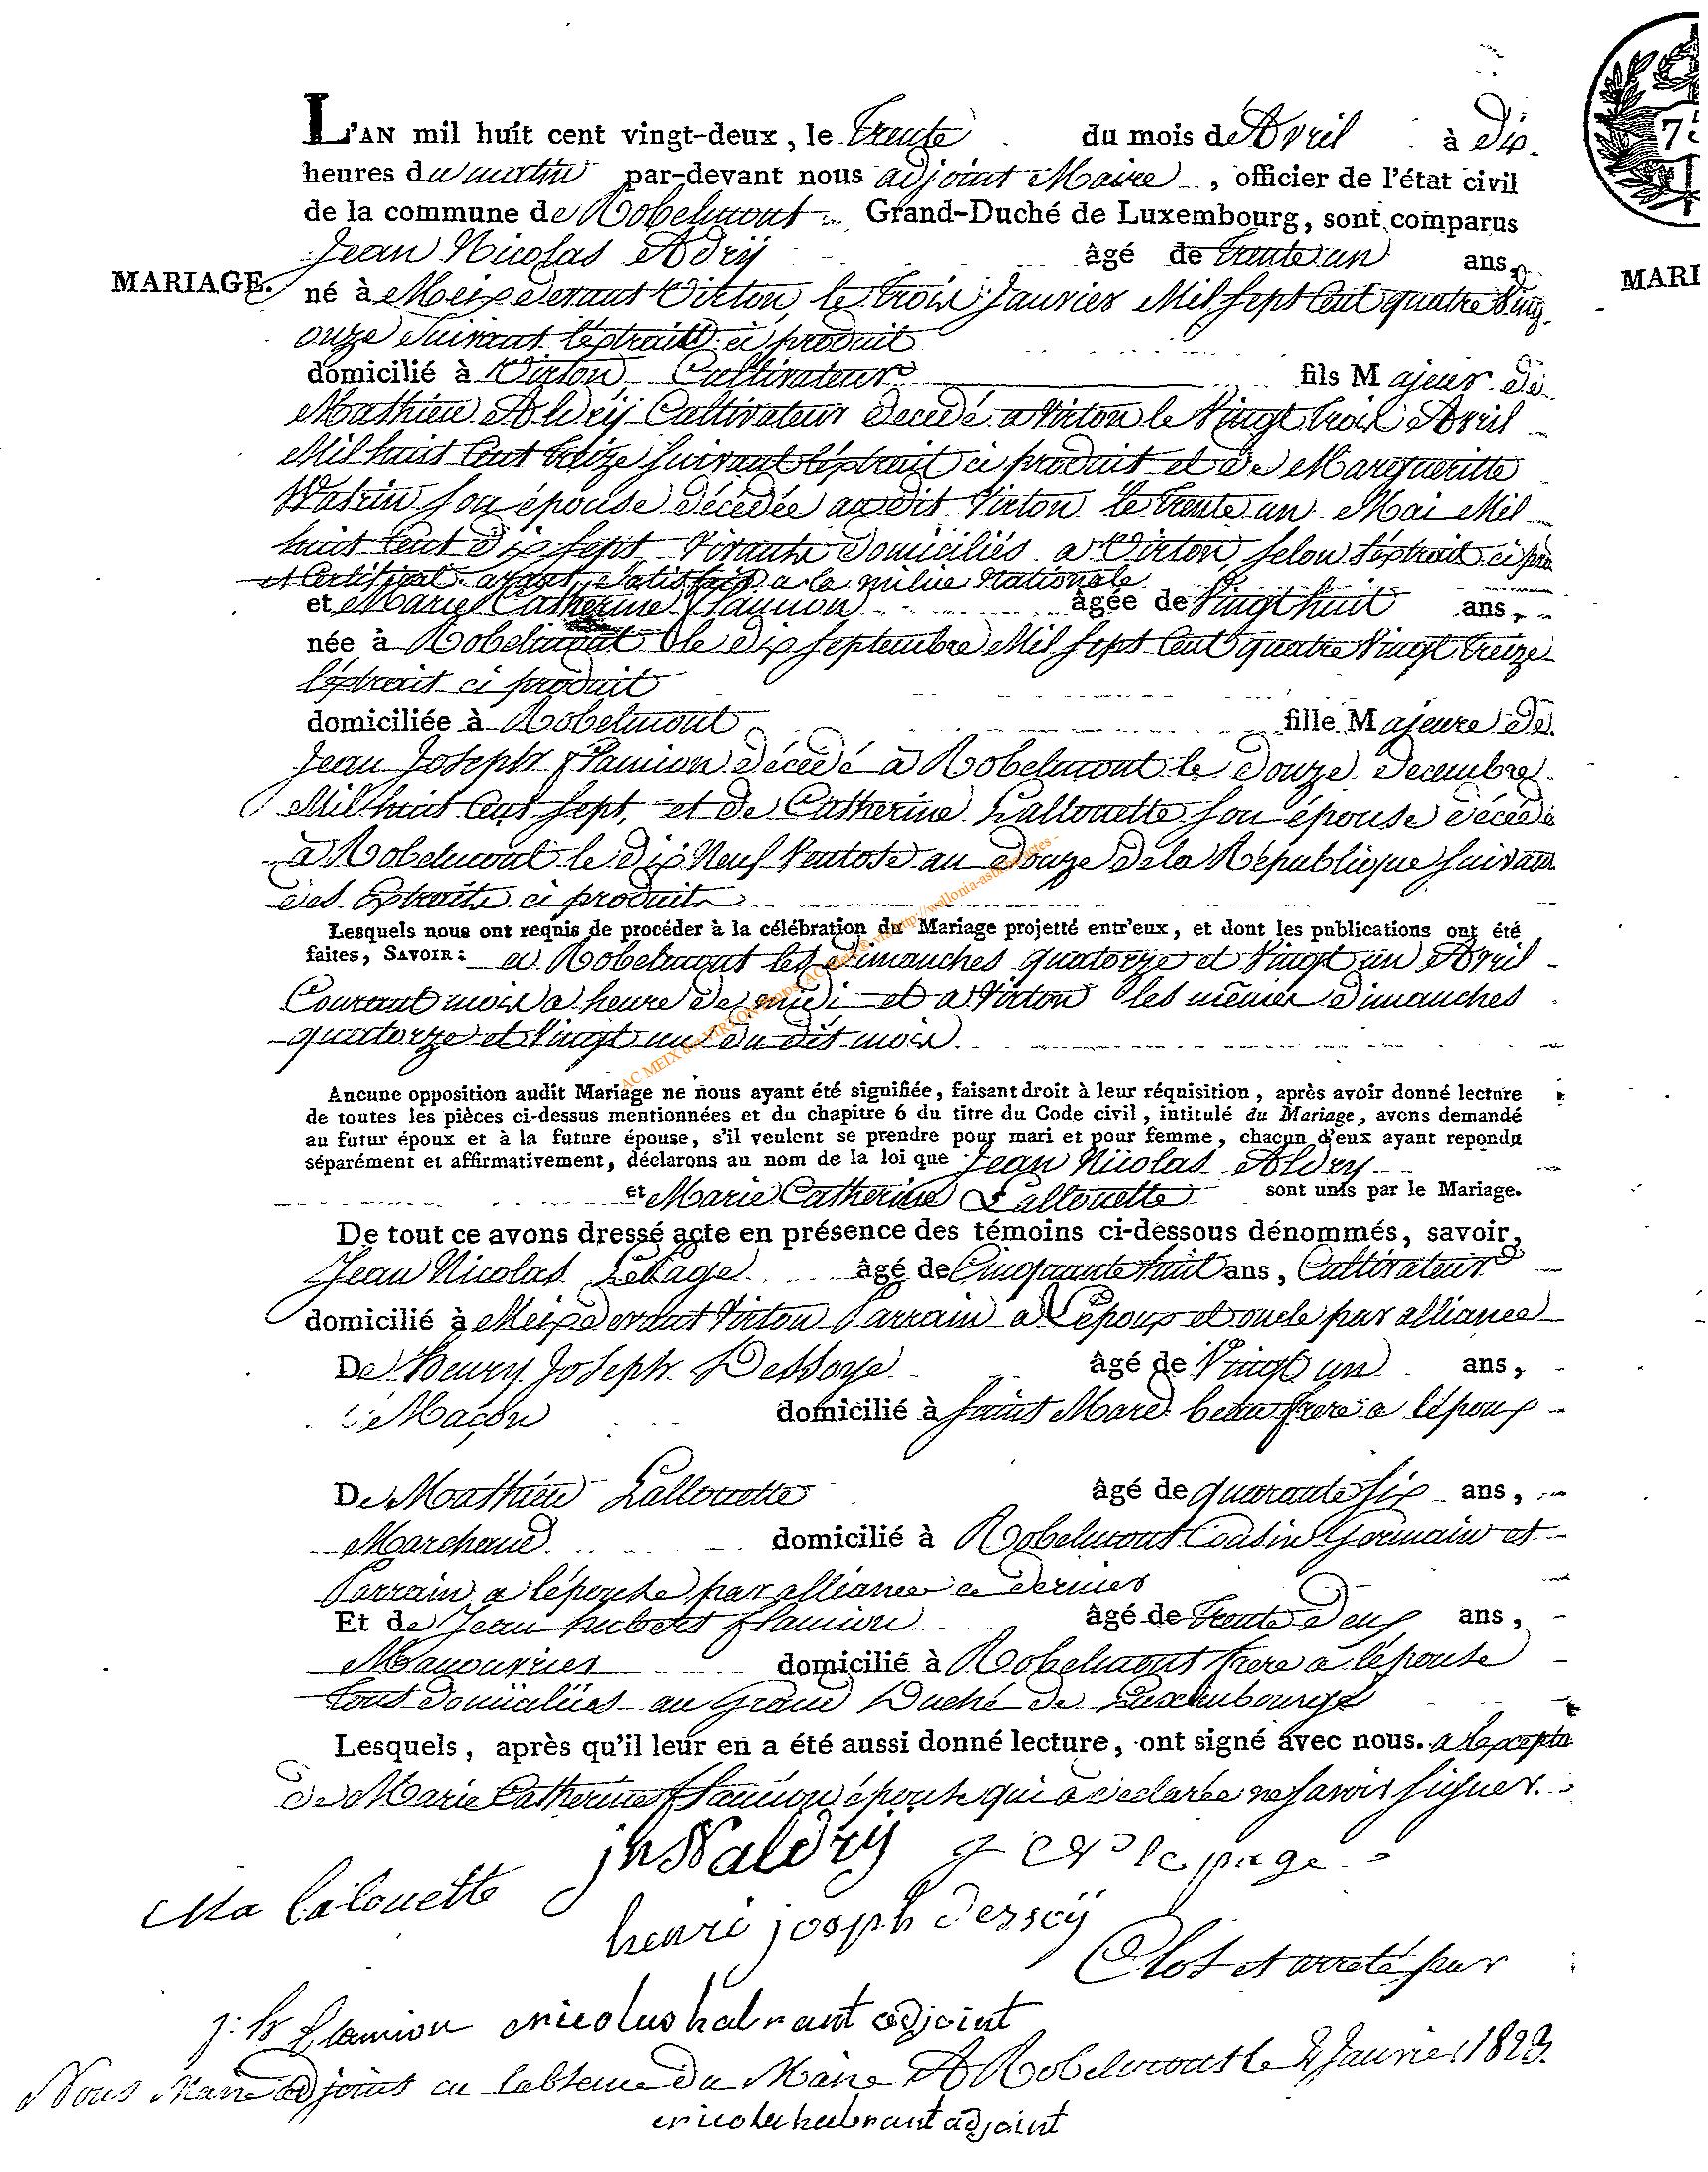 L'AN mil huit cent vingt-deux, le Trente du mois de Avril à Dix
heures du matin par-devant nous adjoint Maire, officier de l'état civil
de la commune de Robelmont Grand-Duché de Luxembourg, sont comparus
Jean Nicolas Adrÿ âgé de trente un ans,
MARIAGE. né à Meix devant Virton, le trois Janvier Mil sept Cent quatre Ving
MARI
onze Suivant l'éxtrait ci produit
domicilié à Virton, Cultivateur fils Majeur de
Mathieu Aldrÿ Cultivateur decedé a Virton le Vingt trois Avril
Mil huit Cent treize suivant l'éxtrait ci produit et de Margueritte
Watrin son épouse décédée audit Virton le trente un Mai Mil
huit Cent dix sept Vivants domiciliés a Virton, selon l'éxtrait ci pro
et Certificat ayant Satisfait a la milice Nationale
et Marie Catherine Flamion âgée de Vingt huit ans,
née à Robelmont le dix septembre Mil sept Cent quatre Vingt treize
l'éxtrait ci produit
domiciliée à Robelmont fille Majeure de
Jean Joseph Flamion décédé à Robelmont le douze decembre
Mil huit Cent sept, et de Catherine Lallouette son épouse décédé
à Robelmont le dix Neuf Ventose an douze de la République suivan
des Extraits ci produits
Lesquels nous ont requis de procéder à la célébration du Mariage projetté entr'eux, et dont les publications ont été
faites, SAVOIR: a Robelmont les dimanches quatorze et Vingt un Avril
Courant mois a heure de midi et a Virton les mêmes dimanches
quatorze et Vingt un du dit mois
Aucune opposition audit Mariage ne nous ayant été signifiée, faisant droit à leur réquisition, après avoir donné lecture
de toutes les pièces ci-dessus mentionnées et du chapitre 6 du titre du Code civil, intitulé du Mariage, avons demandé
au futur époux et à la future épouse, s'il veulent se prendre pour mari et pour femme, chacun d'eux ayant repondu
séparément et affirmativement, déclarons au nom de la loi que Jean Nicolas Aldry
et Marie Catherine Lallouette sont unis par le Mariage.
De tout ce avons dressé acte en présence des témoins ci-dessous dénommés, savoir,
Jean Nicolas LePage âgé de Cinquante huit ans, Cultivateur
domicilié à Meix devant Virton Parrain a l'époux et oncle par alliance
De Henry Joseph Dessoye âgé de Vingt un ans,
Maçon domicilié à Saint Mard beau frere a l'époux
De Mathieu Lallouette âgé de quarante six ans,
Marchand domicilié à Robelmont Cousin Germain et
Parrain a l'épouse par alliance ce dernier
Et de Jean hubert flamion âgé de trente Deux ans,
Manouvrier domicilié à Robelmont frere a l'épouse
tous domiciliées au Grand Duché de Luxembourg
Lesquels, après qu'il leur en a été aussi donné lecture, ont signé avec nous. a l'excepton
de Marie Catherine Flamion épouse qui a declarée ne savoir signer.
jn N aldrÿ
le page
Ma lalouette
henri joseph dessoÿ
Clos et arreté par
j: h flamion nicolas habrant adjoint
Nous Maire adjoint en labsence du Maire A Robelmont le 2 Janvier 1823.
nicolas habrant adjoint